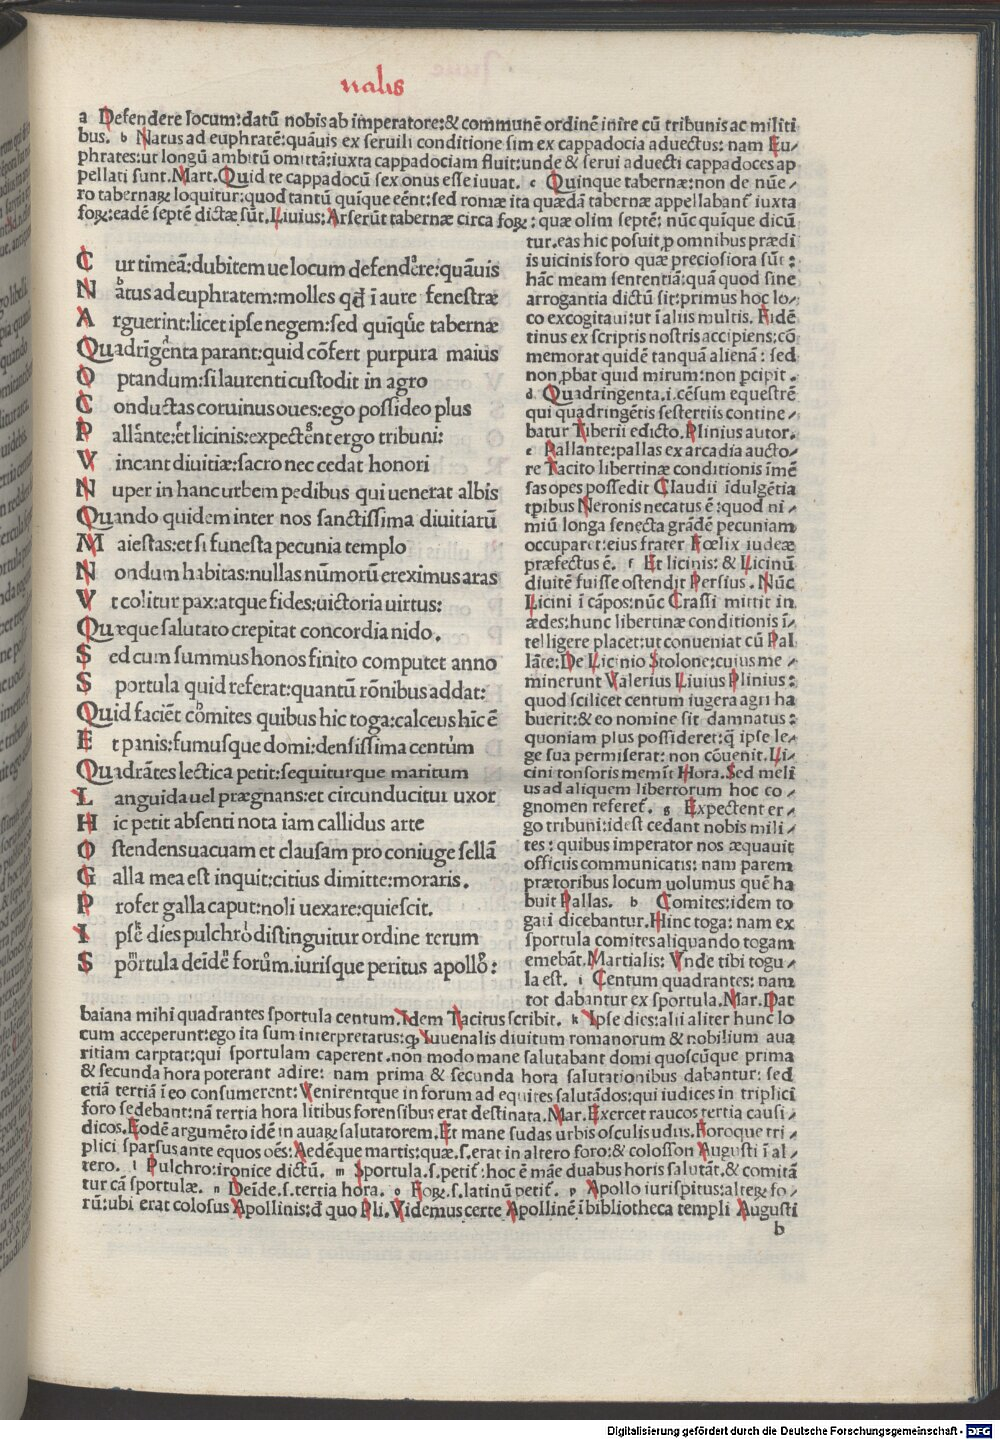 nalis
a Defendere locum:datū nobis ab imperatore:& communē ordinē inire cū tribunis ac militi
bus. b Natus ad euphratē:quāuis ex seruili conditione sim ex cappadocia aduectus: nam Eu/
phrates:ut longū ambitū omittā:iuxta cappadociam fluit:unde & serui aduecti cappadoces ap
pellati sunt.Mart.Quid te cappadocū sex onus esse iuuat. c Quinque tabernæ:non de nūe/
ro tabernaꝝ loquitur:quod tantū quique eēnt:sed romæ ita quædā tabernæ appellabant iuxta
foꝝ:eadē septē dictæ sūt.Liuius:Arserūt tabernæ circa foꝝ: quæ olim septē: nūc quīque dicū
tur.eas hic posuit ꝓ omnibus prædi
is uicinis foro quæ preciosiora sūt:
hāc meam sententiā:quā quod sine
arrogantia dictū sit:primus hoc lo/
co excogitaui:ut ī aliis multis. Fidē
tinus ex scriptis nostris accipiens:cō
memorat quidē tanquā alienā: sed
non ꝓbat quid mirum:non ꝑcipit.
d Quadringenta.i.cēsum equestrē
qui quadringētis sestertiis contine/
batur Tiberii edicto.Plinius autor.
e Pallante:pallas ex arcadia aucto/
re Tacito libertinæ conditionis īmē
sas opes possedit Claudii īdulgētia
tpibus Neronis necatus ē:quod ni/
miū longa senecta grādē pecuniam
occuparet:eius frater Fœlix iudeæ
præfectus ē. f Et licinis: & Licinū
diuitē fuisse ostendit Persius. Nūc
Licini ī cāpos:nūc Crassi mittit in
ædes:hunc libertinæ conditionis ī/
telligere placet:ut conueniat cū Pal
lāte:De Licinio Stolone:cuius me/
minerunt Valerius Liuius Plinius:
quod scilicet centum iugera agri ha
buerit:& eo nomine sit damnatus:
quoniam plus possideret:q̄ ipse le/
ge sua permiserat: non cōuenit.Li/
cini tonsoris memīt Hora.Sed meli
us ad aliquem libertorum hoc co/
gnomen referet. g Expectent er/
go tribuni:idest cedant nobis mili/
tes: quibus imperator nos æquauit
officiis communicatis: nam parem
prætoribus locum uolumus quē ha
buit Pallas. h Comites:idem to
gati dicebantur.Hinc toga: nam ex
sportula comites aliquando togam
emebāt.Martialis: Vnde tibi togu/
la est. i Centum quadrantes: nam
tot dabantur ex sportula.Mar.Dat
C ur timeā:dubitem ue locum defendere:quāuis
N atus ad euphratem:molles qd ī aure fenestræ
A rguerint:licet ipse negem:sed quīque tabernæ
Quadrīgenta parant:quid cōfert purpura maius
O ptandum:si laurenti custodit in agro
C onductas coruinus oues:ego possideo plus
P allante:et licinis:expectent ergo tribuni:
V incant diuitiæ:sacro nec cedat honori
N uper in hanc urbem pedibus qui uenerat albis
Quando quidem inter nos sanctissima diuitiarū
M aiestas:et si funesta pecunia templo
N ondum habitas:nullas nūmorū ereximus aras
V t colitur pax:atque fides:uictoria uirtus:
Quæque salutato crepitat concordia nido.
S ed cum summus honos finito computet anno
S portula quid referat:quantū rōnibus addat:
Quid faciēt comites quibus hic toga:calceus hīc ē
E t panis:fumusque domi:densissima centum
Quadrātes lectica petit:sequiturque maritum
L anguida uel prægnans:et circunducitur uxor
H ic petit absenti nota iam callidus arte
O stendens uacuam et clausam pro coniuge sellā
G alla mea est inquit:citius dimitte:moraris.
P rofer galla caput:noli uexare:quiescit.
I pse dies pulchro distinguitur ordine rerum
S portula deīde forum.iurisque peritus apollo:
baiana mihi quadrantes sportula centum.Idem Tacitus scribit. k Ipse dies:alii aliter hunc lo
cum acceperunt:ego ita sum interpretatus:ꝙ Iuuenalis diuitum romanorum & nobilium aua
ritiam carptat:qui sportulam caperent.non modo mane salutabant domi quoscūque prima
& secunda hora poterant adire: nam prima & secunda hora salutationibus dabantur: sed
etiā tertiā ī eo consumerent:Venirentque in forum ad equites salutādos:qui iudices in triplici
foro sedebant:nā tertia hora litibus forensibus erat destinata.Mar.Exercet raucos tertia causi/
dicos.Eodē argumēto idē in auaꝝ salutatorem.Et mane sudas urbis osculis udus.Foroque tri/
plici sparsus ante equos oēs:Aedēque martis:quæ.s.erat in altero foro:& colosson Augusti ī al/
tero. l Pulchro:ironice dictū. m Sportula.s.petit:hoc ē māe duabus horis salutāt.& comitā
tur cā sportulæ. n Deīde.s.tertia hora. o Foꝝ.s.latinū petit. p Apollo iurispitus:alteꝝ fo/
rū:ubi erat colosus Apollinis:d̄ quo Pli.Videmus certe Apollinē ī bibliotheca templi Augusti
b
Digitalisierung gefördert durch die Deutsche Forschungsgemeinschaft - DFG